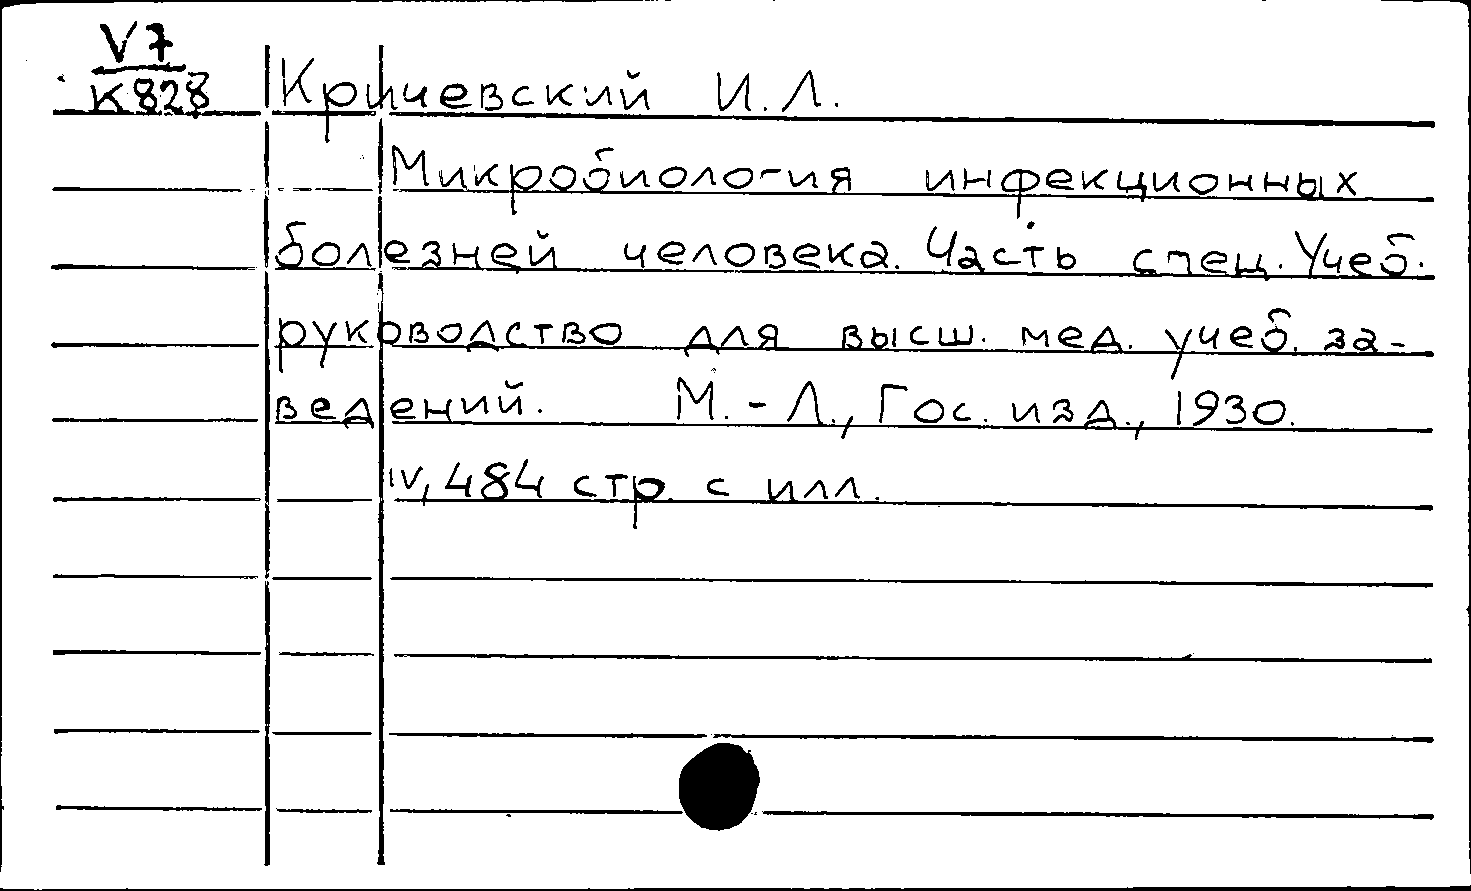 V7
К828
Кричевский И.Л.
Микробиология инфекционных
болезней человека. Часть спец. Учеб.
руководство для высш. мед. учеб. за-
ведений. М.-Л., Гос. изд., 1930.
IV, 484 стр. с илл.